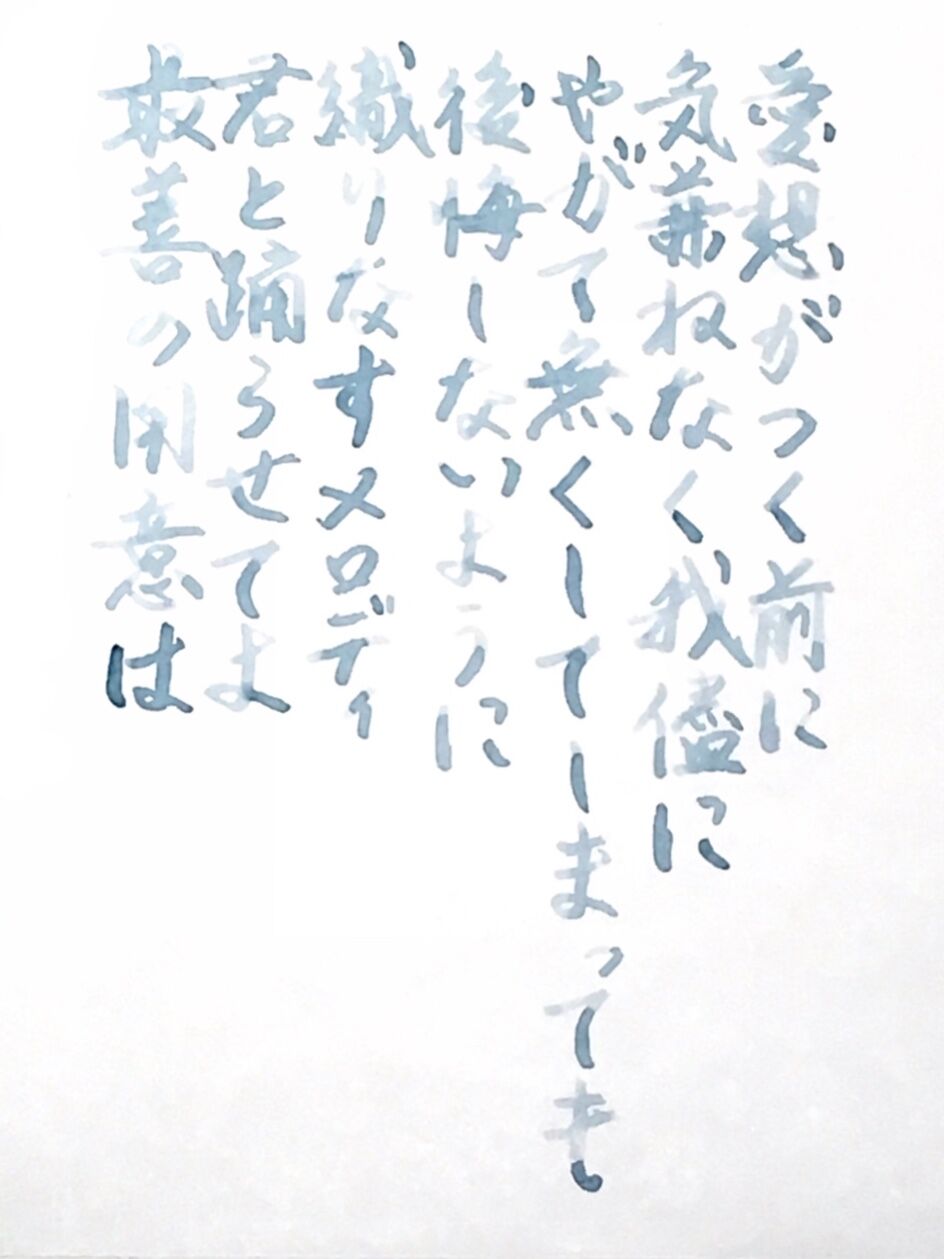 愛想がつく前に
気兼ねなく我儘に
やがて無くしてしまっても
後悔しないように
織りなすメロディ
君と踊らせてよ
最善の用意は